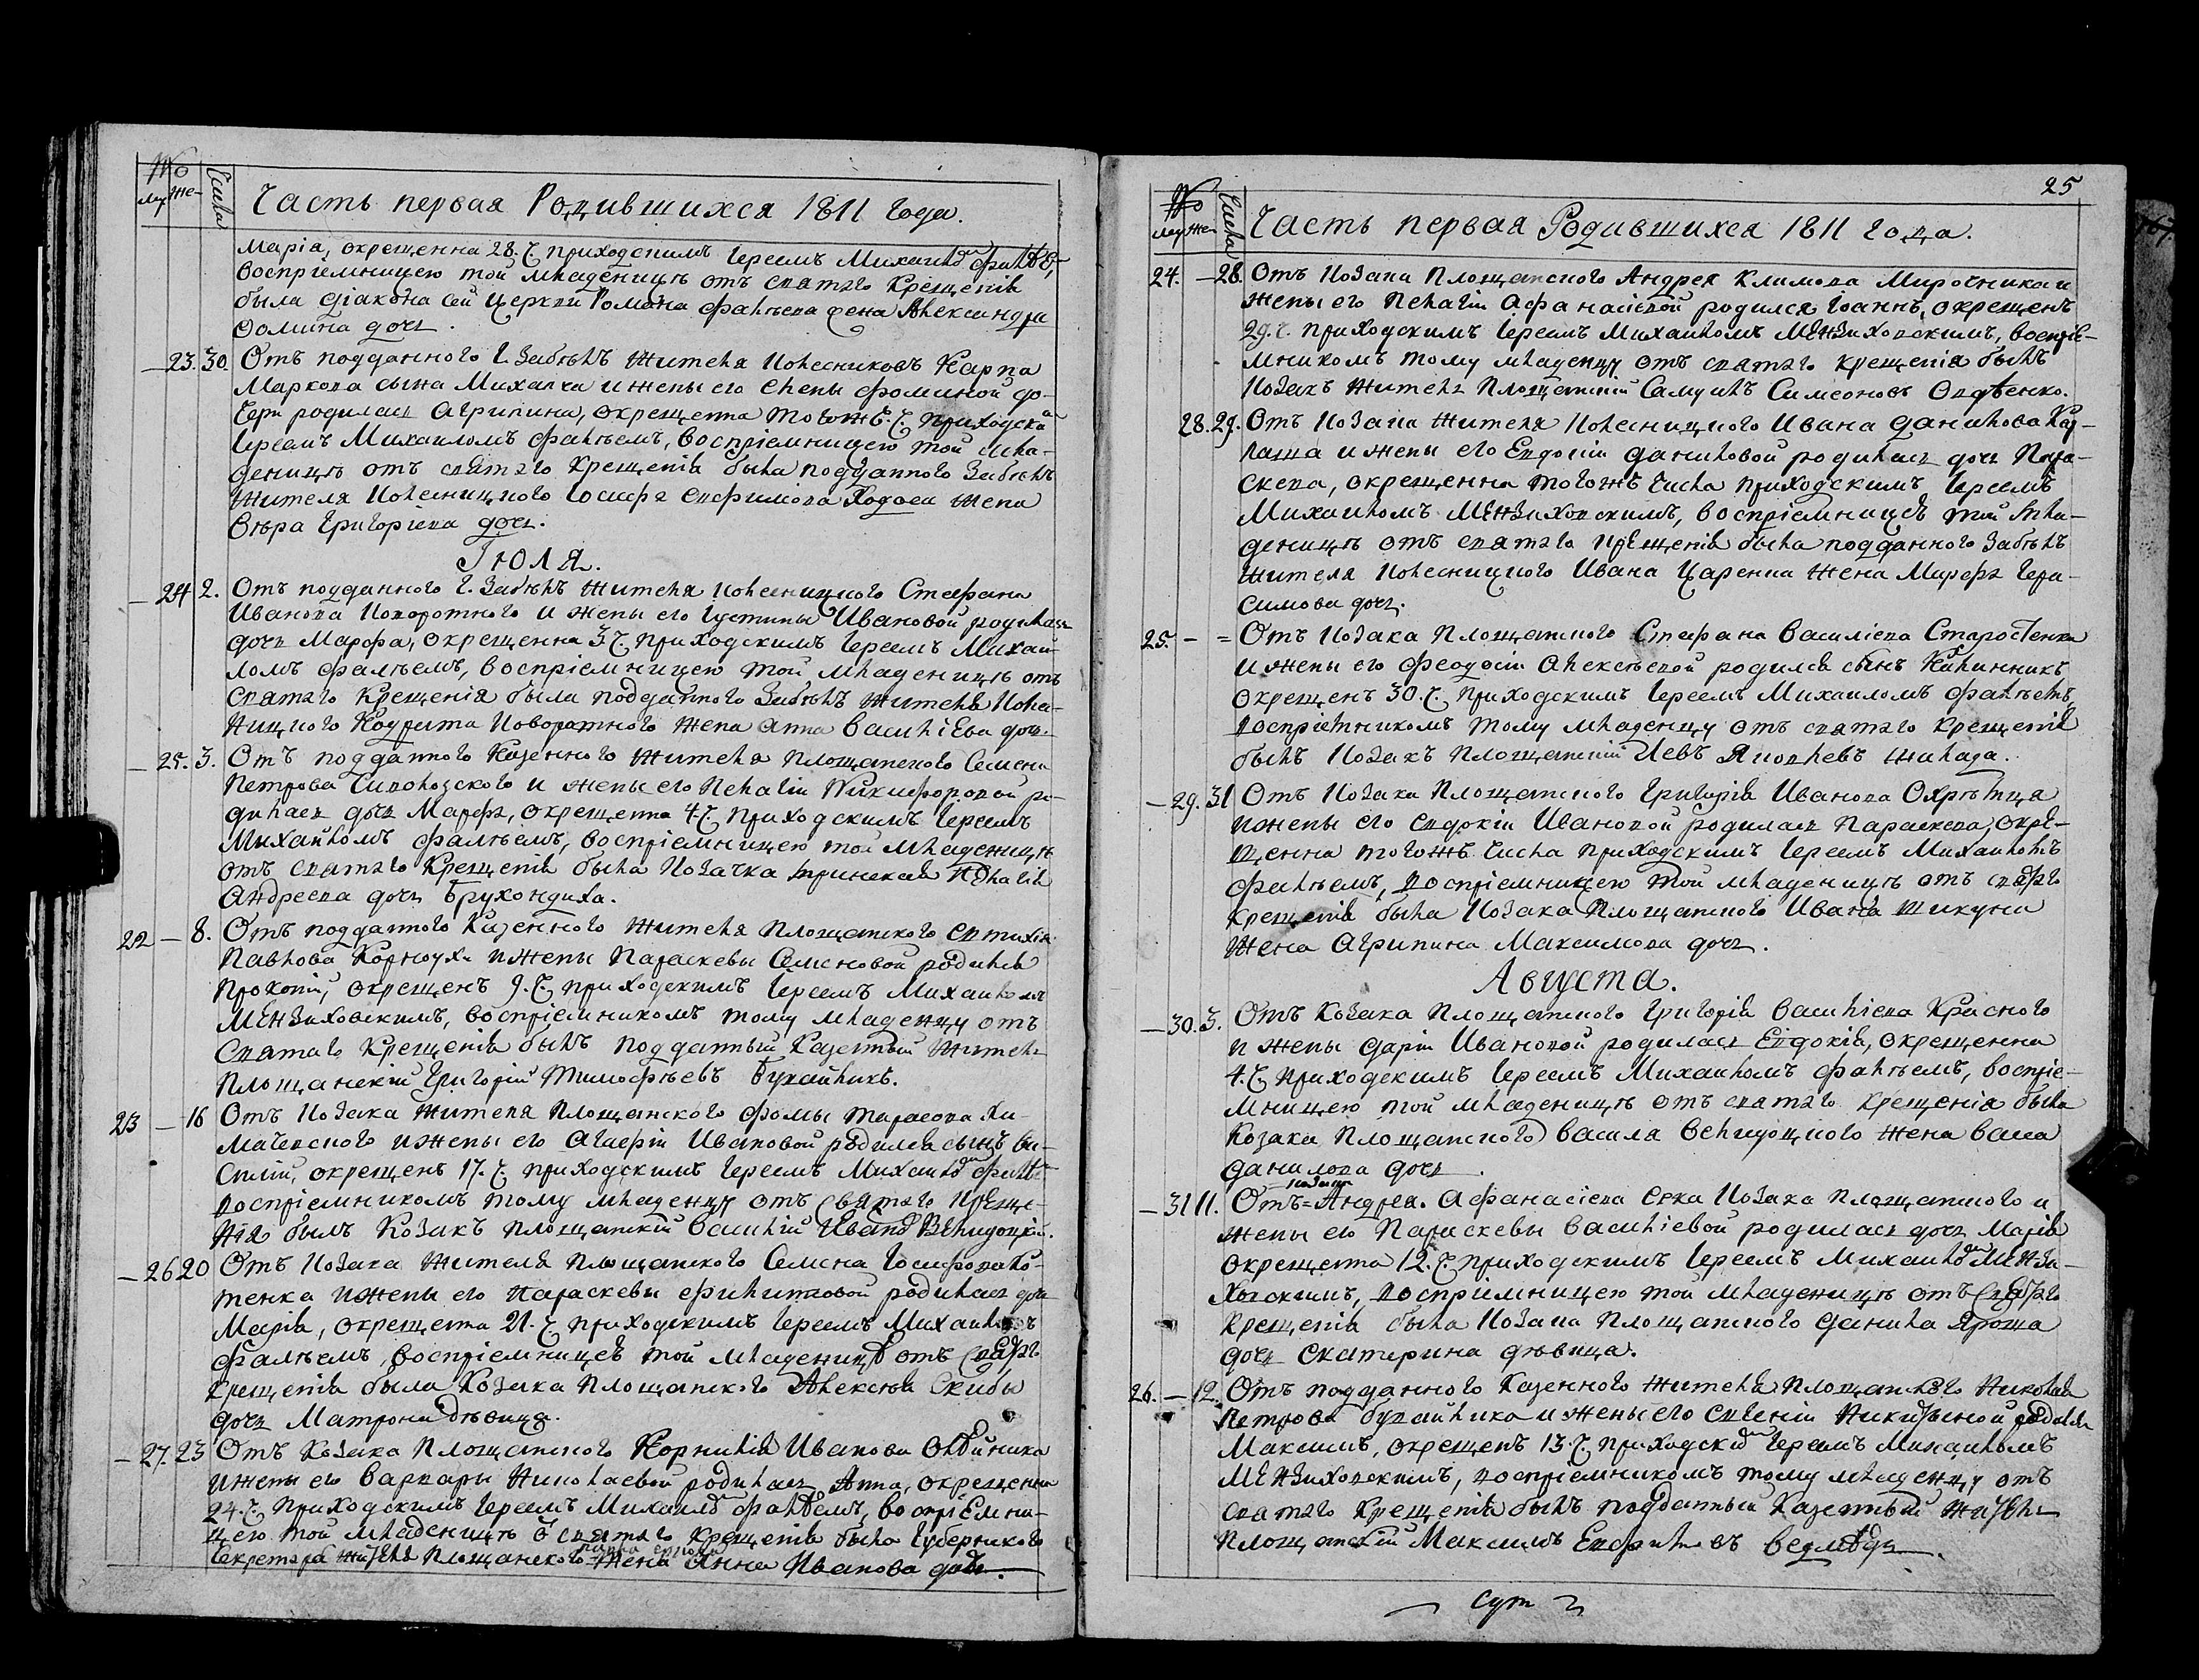 №
му. же.
Числа
Часть первая Родившихся 1811 Года.
Марія, окрещенна 28. Ч. приходскимъ Іереемъ
воспріемницею той младеницѣ отъ святаго Крещенія
была діакона сей Церкви Романа Фалѣева жена Александра
Фомина дочь.
— 23. 30. Отъ подданного Г. Забѣлъ жителя Колесниковъ Карпа
Маркова сына Михалча и жены его Елены Фоминой до-
чери родилась Агрипина, окрещенна тогожъ Ч. приходским
Іереемъ Михаиломъ Фалѣемъ, воспріемницею той мла-
деницѣ отъ святаго Крещенія была подданного Забѣлъ
жителя Колесницкого Іосифа Евфимова Ходоса жена
Вѣра Григоріева дочь.
Іюля.
— 24 2. Отъ подданного Г. Забѣлъ жителя Колесницкого Стефана
Иванова Поворотного и жены его Іустины Ивановой родилась
дочь Марфа, окрещенна 3 Ч. приходскимъ Іереемъ Михаи
ломъ Фалѣемъ, воспріемницею той младеницѣ отъ
Святаго Крещенія была подданного Забѣлъ жителя Коле-
ницкого Кодрата Поворотного жена Анна Василіева дочь.
— 25. 3. Отъ подданного Казенного жителя Площанского Семена
Петрова и жены его Пелагіи Никифоровой ро-
дилась дочь Марфа, окрещенна 4. Ч. приходскимъ Іереемъ
Михайломъ Фалѣемъ, воспріемницею той младеницѣ
отъ святаго Крещенія была Козачка Пелагія
Андреева дочь
22 — 8. Отъ подданного Казенного жителя Площанского Евтихія
Павлова Корноуха и жены Параскевы Семеновой родился
Прокопій, окрещенъ 9. Ч. приходскимъ Іереемъ Михаиломъ
Мензиховскимъ, воспріемникомъ тому младенцу отъ
Святаго Крещенія былъ подданный Казенный житель
Площанскій Григорій Тимофѣевъ Бугайникъ.
23 — 16 Отъ Козака жителя Площанского Фомы Тарасова
и жены его Агафіи Ивановой родился сынъ Ва-
силій, окрещенъ 17. Ч. приходскимъ Іереемъ
воспріемникомъ тому младенцу отъ Святаго Креще-
нія былъ Козакъ Площанскій Василій Велидоцкій.
— 26 20 Отъ Козака жителя Площанского Семена
и жены его Параскевы Филиповой родилась дочь
Марія, окрещенна 21. Ч. приходскимъ Іереемъ Михаиломъ
Фалѣемъ, воспріемницею той младеницѣ отъ Святаго
Крещенія была Козака Площанского Алексѣя Скибы
дочь Матрона дѣвица.
— 27. 23 Отъ Козака Площанского Корнилія Иванова Олѣйника
и жены его Варвары Николаевой родилась Анна, окрещенна
24. Ч. приходскимъ Іереемъ Михаиломъ Фалѣемъ, воспріемни-
цею той младеницѣ святаго Крещенія была Губернского
Секретара жителя Площанского жена Анна Иванова дочь.
25
№
му. же.
Числа
Часть первая Родившихся 1811 года.
24. — 28. Отъ Козака Площанского Андрея Климова Мирочника и
жены его Пелагіи Афанасіевой родился Іоаннъ, окрещенъ
29. Ч. приходскимъ Іереемъ Михаиломъ Мензиховскимъ, воспріе-
мникомъ тому младенцу отъ святаго крещенія былъ
Козакъ житель Площанскій Самуилъ Симеоновъ Овдѣенко.
28. 29. Отъ Козака жителя Колесницкого Ивана Данилова Кар-
паша и жены его Евдокіи Даниловой родилась дочь Пара-
скева, окрещенна тогожъ Числа приходскимъ Іереемъ
Михаиломъ Мензиховскимъ, воспріемницею той мла-
деницѣ отъ святаго крещенія была подданного Забѣлъ
жителя Колесницкого Ивана Царенка жена Марфа Гера-
симова дочь.
25. — = Отъ Козака Площанского Стефана Василіева Старостенка
и жены его Феодосіи Алексѣевой родился сынъ Калинникъ
окрещенъ 30. Ч. приходскимъ Іереемъ Михаиломъ Фалѣемъ,
воспріемникомъ тому младенцу отъ святаго Крещенія
былъ Козакъ Площанскій Левъ Яковлевъ
— 29. 31 Отъ Козака Площанского Григорія Иванова Охрѣмца
и жены его Евдокіи Ивановой родилась Параскева, окре-
щенна тогожъ Числа приходскимъ Іереемъ Михаиломъ
Фалѣемъ, воспріемницею той младеницѣ отъ святаго
Крещенія была Козака Площанского Ивана Шикуна
жена Агрипина Максимова дочь.
Августа.
— 30. 3. Отъ Козака Площанского Григорія Василіева Красного
и жены Даріи Ивановой родилась Евдокія, окрещенна
4. Ч. приходскимъ Іереемъ Михаиломъ Фалѣемъ, воспріе-
мницею той младеницѣ отъ святаго крещенія была
Козака Площанского Василя Велидоцкого жена Васса
Данилова дочь.
— 31 11. Отъ Андрея Афанасіева Козака Площанского и
жены его Параскевы Василіевой родилась дочь Марія
окрещенна 12. Ч. приходскимъ Іереемъ Михаиломъ Мензи-
ховскимъ, воспріемницею той младеницѣ отъ Святаго
Крещенія была Козака Площанского Данила Яроша
дочь Екатерина дѣвица.
26. — 12. Отъ подданного Казенного жителя Площанского Николая
Петрова Бугайника и жены его Евгеніи Никитиной родился
Максимъ, окрещенъ 13. Ч. приходскимъ Іереемъ Михаиломъ
Мензиховскимъ, воспріемникомъ тому младенцу отъ
святаго Крещенія былъ подданный Казенный житель
Площанскій Максимъ Ведмѣдь.